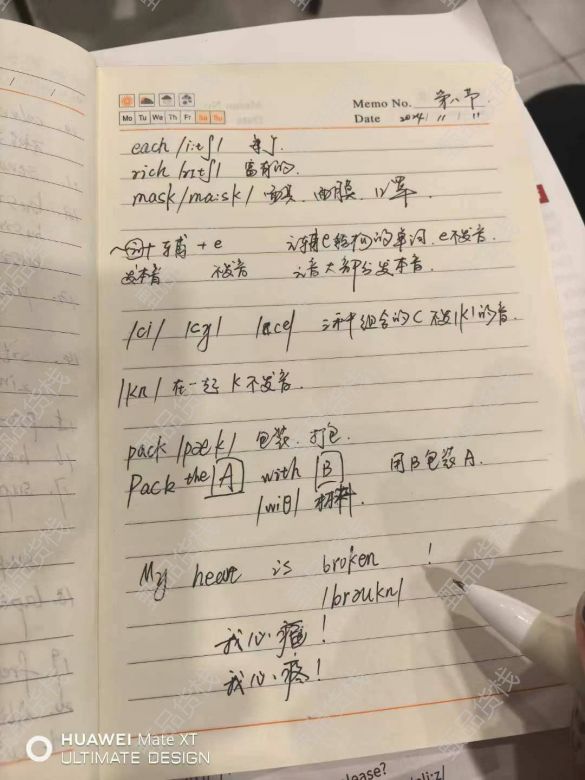 Memo No. 第八节
Mo Tu We Th Fr Sa Su
Date 2024 / 11 / 11
each /i:tʃ/ 每个.
rich /rɪtʃ/ 富有的.
mask /ma:sk/ 面具. 面膜. 口罩.
~元+辅+e 元辅e结构的单词. e不发音.
发本音 不发音 元音大部分发本音.
/ci/ /cy/ /ce/ 三种组合的C 不发/k/的音.
/kn/ 在一起 k 不发音.
pack /pæk/ 包装. 打包.
Pack the A with B 用B包装A.
/wiθ/ 材料.
My heart is broken !
/brəukn/
我心 !
我心疼!
HUAWEI Mate XT
ULTIMATE DESIGN
lease?